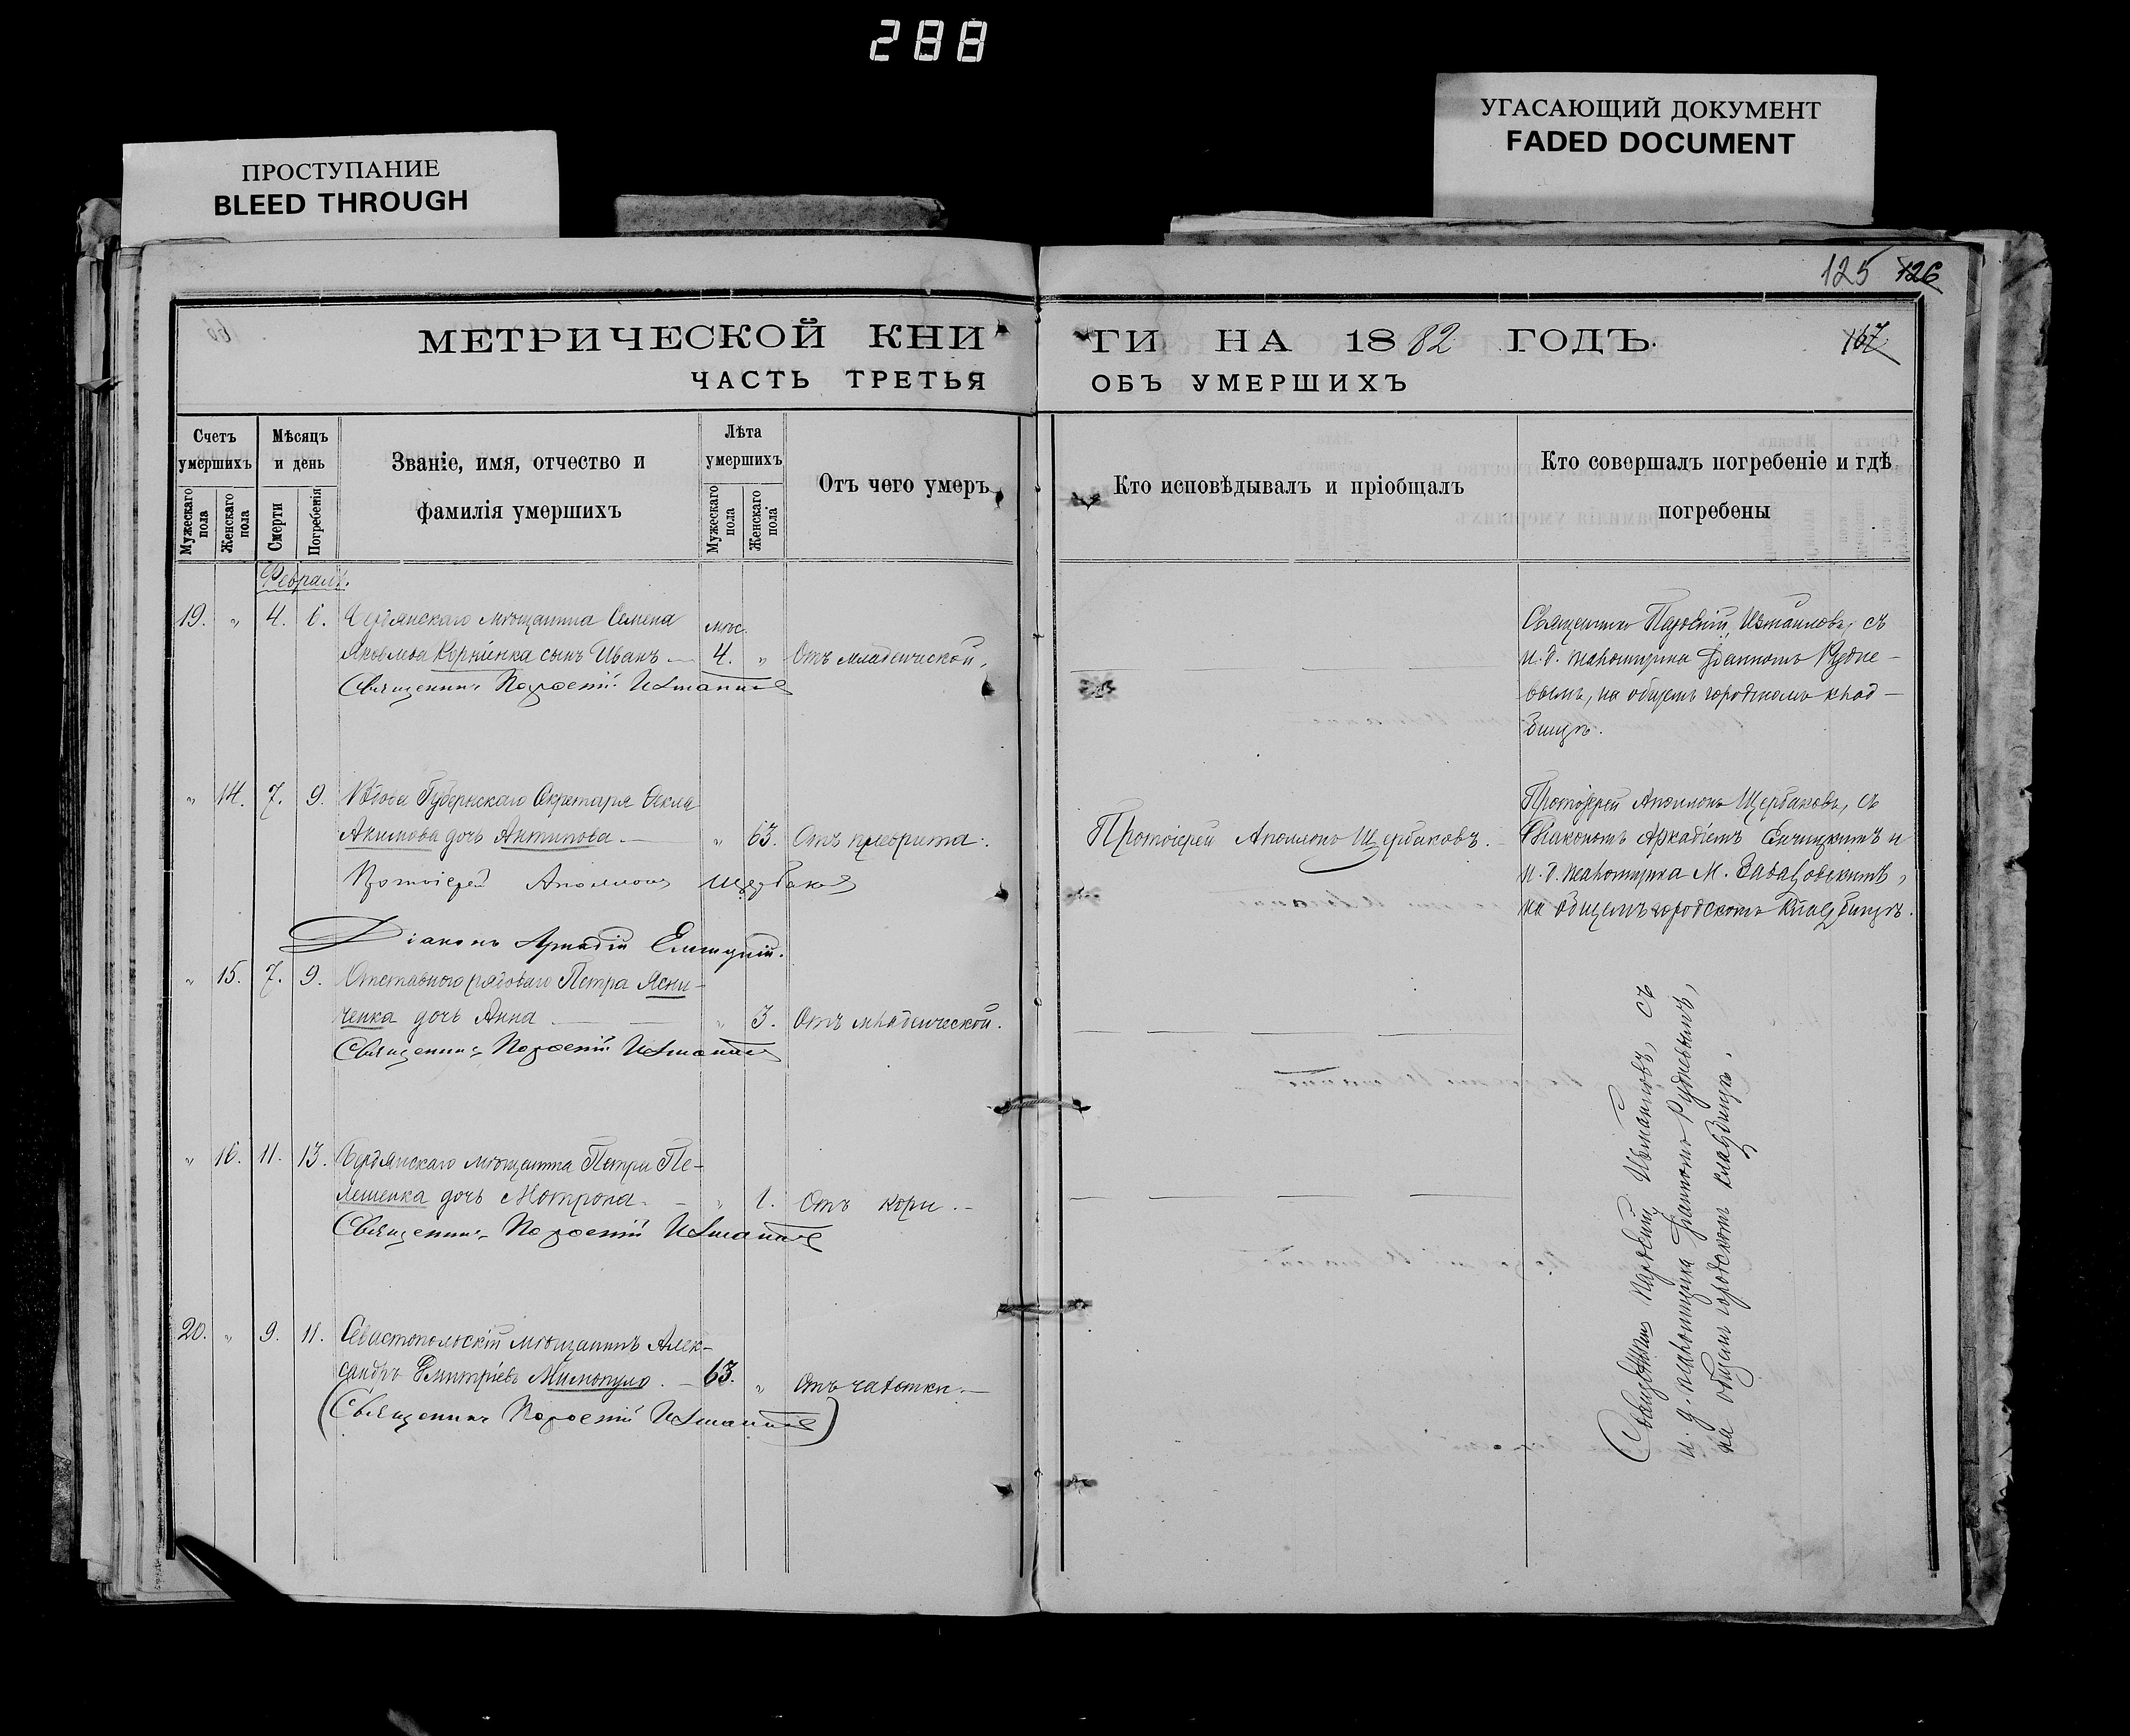 288
УГАСАЮЩИЙ ДОКУМЕНТ
FADED DOCUMENT
ПРОСТУПАНИЕ
BLEED THROUGH
125 126
МЕТРИЧЕСКОЙ КНИ
ГИ НА 1882 ГОДЪ.
167
ЧАСТЬ ТРЕТЬЯ
ОБЪ УМЕРШИХЪ
Счетъ умершихъ
Мужескаго пола
Женскаго пола
Мѣсяцъ и день
Смерти
Погребенія
Званіе, имя, отчество и
фамилія умершихъ
Лѣта умершихъ
Мужескаго пола
Женскаго пола
Отъ чего умеръ
Кто исповѣдывалъ и пріобщалъ
Кто совершалъ погребеніе и гдѣ
погребены
Февраль.
19. „ 4. 6. Бердянскаго мѣщанина Семена
Яковлева Корніенка сынъ Иванъ — мѣс. 4. „ Отъ младенческой.
Священникъ Парѳеній
Священникъ Парѳеній Измаиловъ, съ
и. д. псаломщика Іоанномъ Рудне-
вымъ, на общемъ городскомъ клад-
бищѣ.
„ 14. 7. 9. Вдова Губернскаго Секретаря Ѳекла
Акимова дочь Антипова. — „ 63. Отъ плеврита.
Протоіерей Аполлонъ Щербаковъ
Діаконъ Аркадій
Протоіерей Аполлонъ Щербаковъ.
Протоіерей Аполлонъ Щербаковъ, съ
Діакономъ Аркадіемъ и
и. д. псаломщика М. Завадовскимъ,
на общемъ городскомъ кладбищѣ.
„ 15. 7. 9. Отставного рядоваго Петра Ясни-
ченка дочь Анна — „ 3. Отъ младенческой.
Священникъ Парѳеній
„ 16. 11. 13. Бердянскаго мѣщанина Петра Пе-
лешенка дочь Мотрона. — „ 1. Отъ кори. —
Священникъ Парѳеній
20. „ 9. 11. Севастопольскій мѣщанинъ Алек-
сандръ Дмитріевъ — 63. „ Отъ чахотки. —
(Священникъ Парѳеній
Священникъ Парѳеній Измаиловъ, съ
и. д. псаломщика Іоанномъ Рудневымъ,
на общемъ городскомъ кладбищѣ.